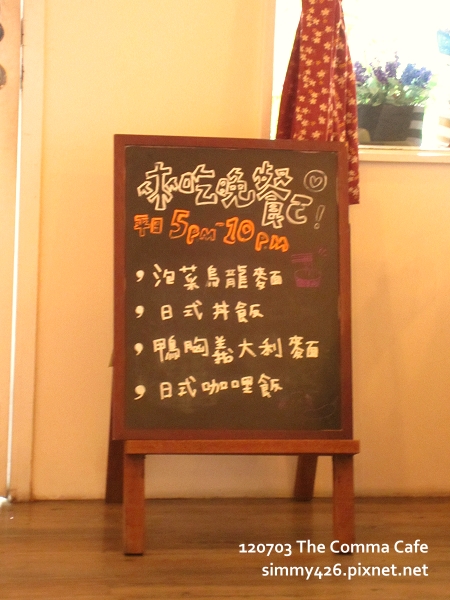 來吃晚餐己!
平日 5PM-10PM
, 泡菜烏龍麵
, 日式丼飯
, 鴨胸義大利麵
, 日式咖哩飯
120703 The Comma Cafe
simmy426.pixnet.net